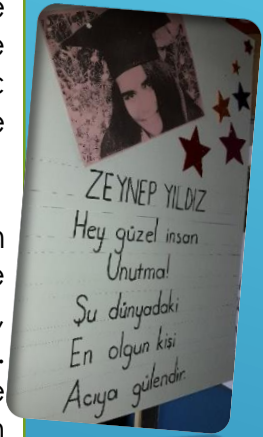 ZEYNEP YILDIZ
Hey güzel insan
Unutma!
Şu dünyadaki
En olgun kişi
Acıya gülendir.